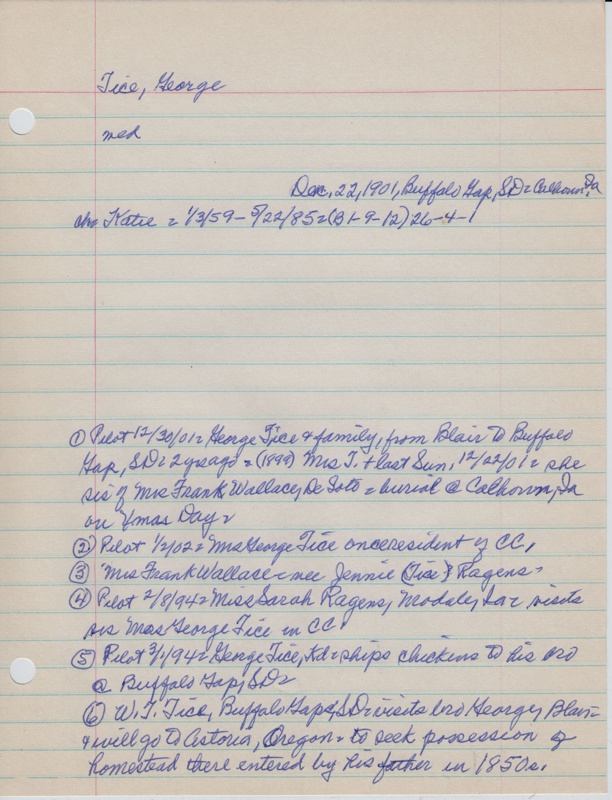 Tice, George
med
Dec, 22, 1901, Buffalo Gap, SD = Calhoun, Ia
ch = Katie = 1/3/59 - 5/22/85 = (B1-9-12) 26-4-1
① Pilot 12/30/01 = George Tice & family, from Blair to Buffalo
Gap, SD = 2 yrs ago = (1899) Mrs T. + last Sun, 12/22/01 = she
sis of Mrs Frank Wallace, De Soto = burial @ Calhoun, Ia
on Xmas Day =
② Pilot 1/2/02 = Mrs George Tice once resident of CC,
③ Mrs Frank Wallace = nee Jennie (Tice) Ragens =
④ Pilot 2/8/94 = Miss Sarah Ragens, Modale, Ia = visits
sis Mrs George Tice in CC
⑤ Pilot 3/1/94 = George Tice, Kd = ships chickens to his bro
@ Buffalo Gap, SD =
⑥ W. T. Tice, Buffalo Gap, SD = visits bro George, Blair =
& will go to Astoria, Oregon = to seek possession of
homestead there entered by his father in 1850s.